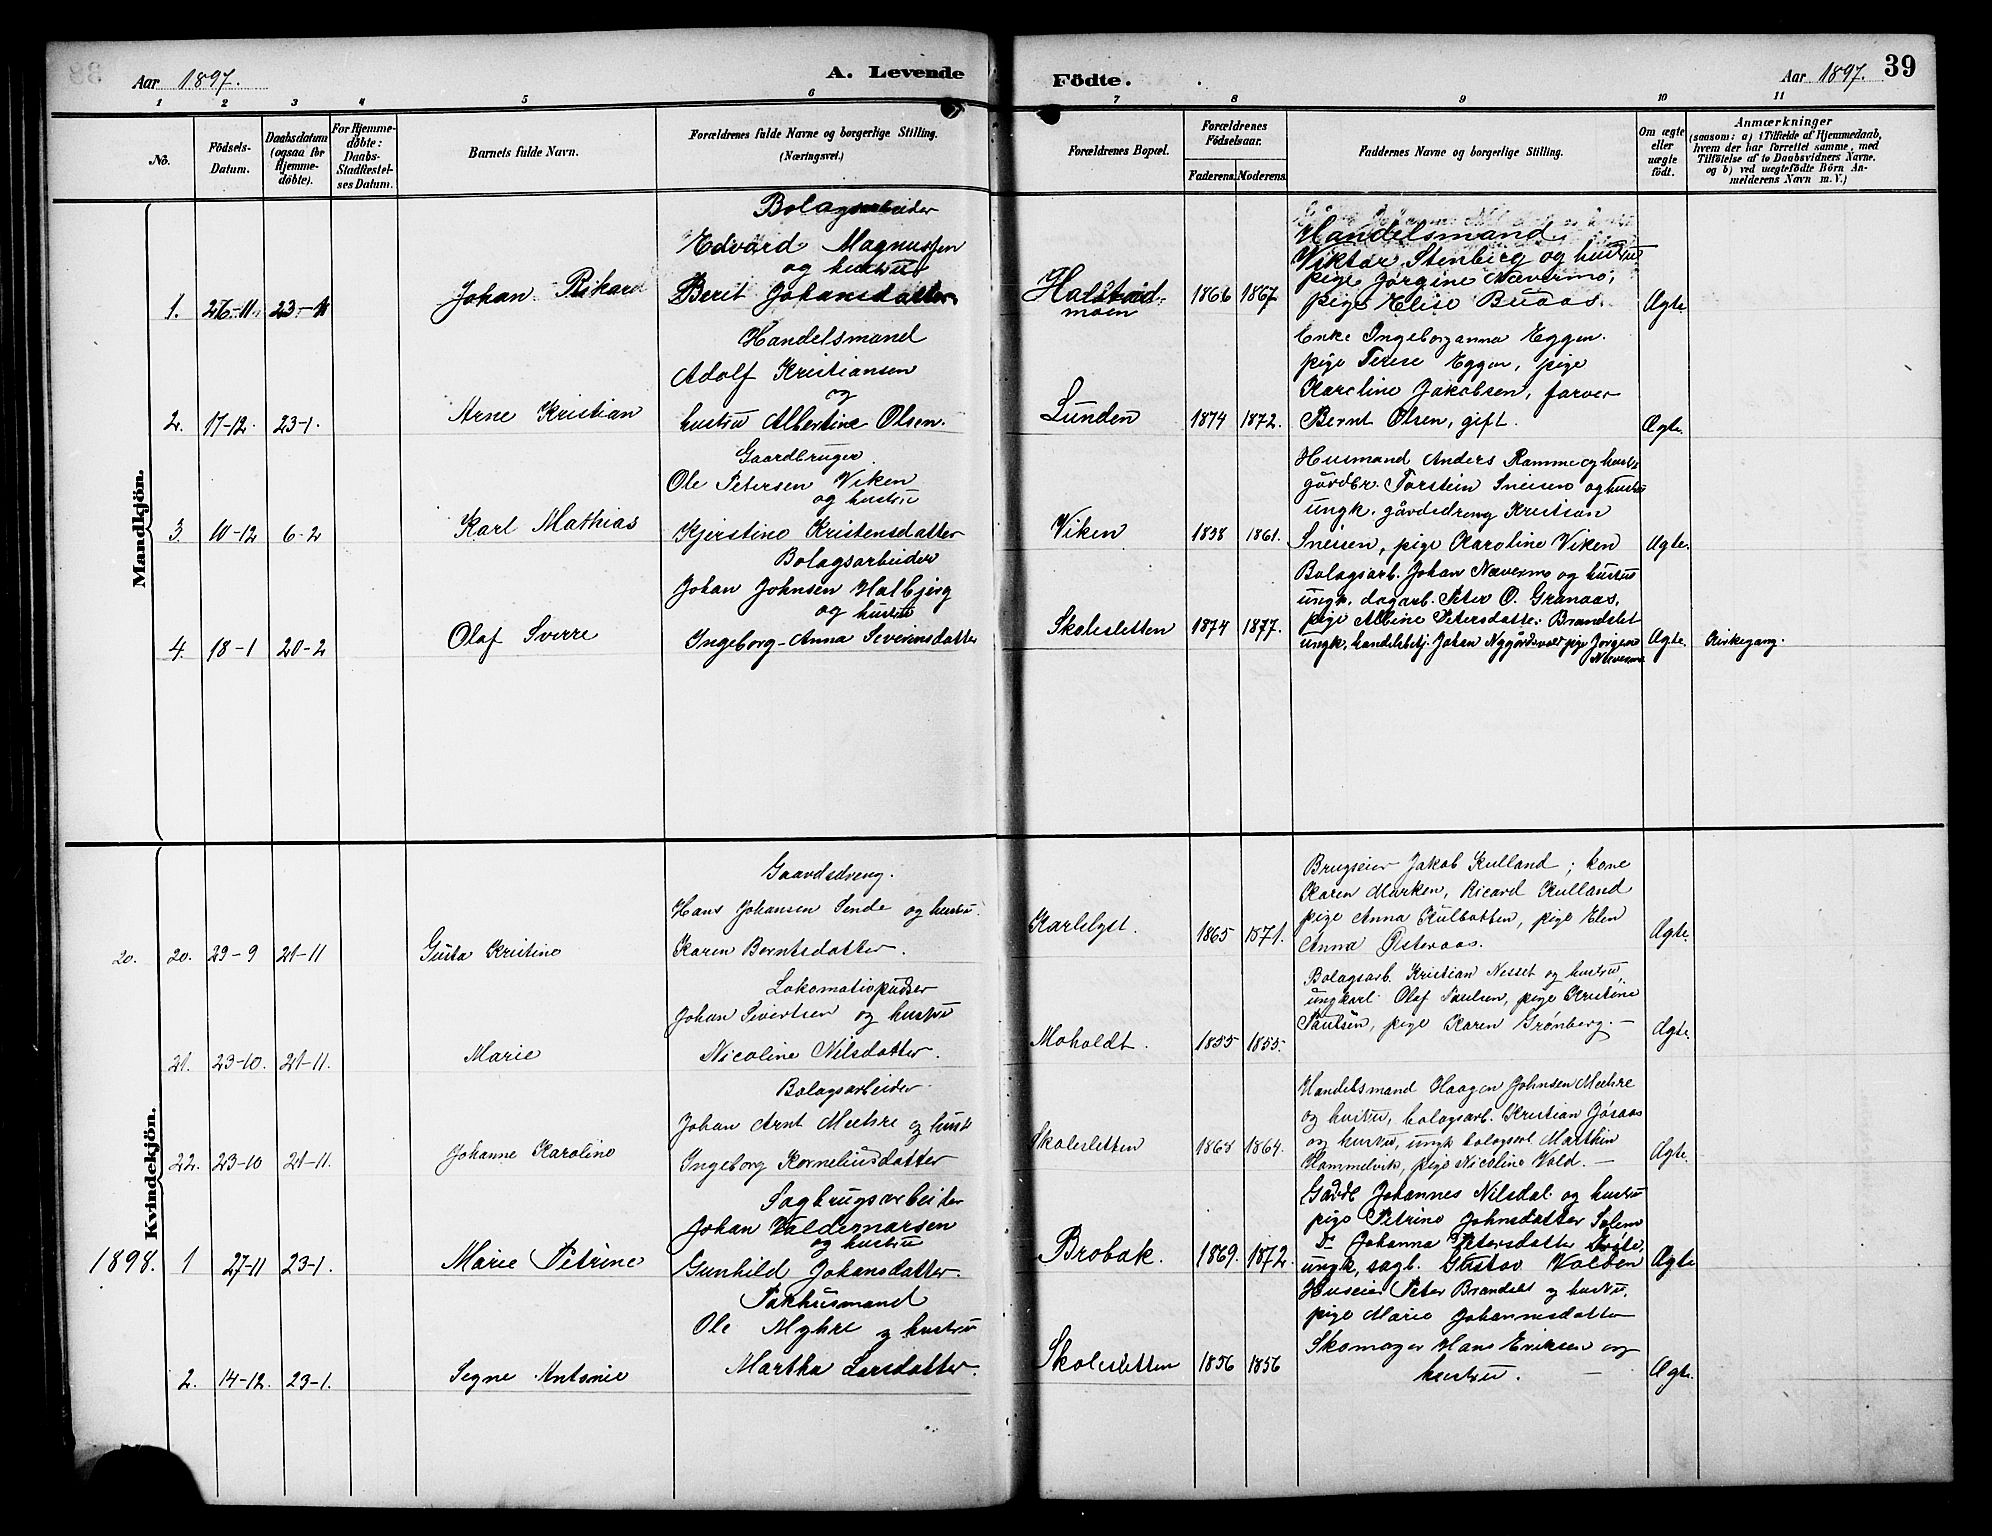 Aar 1897.
A. Levende
Födte.
Aar 1897. 39
1 2 3 4 5 6 7 8 9 10 11
No.
Födsels-
Datum.
Daabsdatum
(ogsaa for
Hjemme-
döbte).
For Hjemme-
döbte:
Daabs-
Stadfestel-
ses Datum.
Barnets fulde Navn.
Forældrenes fulde Navne og borgerlige Stilling.
(Næringsvei.)
Forældrenes Bopæl.
Forældrenes
Födselsaar.
Faderens. Moderens.
Faddernes Navne og borgerlige Stilling.
Om ægte
eller
uægte
födt.
Anmærkninger
(saasom: a) i Tilfælde af Hjemmedaab,
hvem der har forrettet samme, med
Tilföielse af to Daabsvidners Navne.
og b) ved uægtefödte Börn An-
melderens Navn m. V.)
Mandkjön.
1. 26-11. 23-11
Johan Rikard
Bolagsarbeider
Edvard Magnussen
og hustru
Berit Johansdatter
moen
1866 1867
Handelsmand
Viktor Stenberg og hustru
pige Jørgine Nævermo,
pige Elise Bruaas.
Ægte
2. 17-12. 23-1.
Arne Kristian
Handelsmand
Adolf Kristiansen
og
hustru Albertine Olsen.
Lunden
1874 1872.
Enke Ingeborganna Eggen.
pige Terese Eggen, pige
Kareline Jakobsen, farver
Bernt Olsen, gift.
Ægte.
3. 10-12 6-2
Karl Mathias
Gaardbruger
Ole Petersen Viken
og hustru
Kjerstine Kristensdatter
Viken
1838 1861.
Husmand Anders Ramme og hustru
gårdbr. Torstein Sneisen og hustru
ungk. gårdsdreng Kristian
Sneisen, pige Karoline Viken
Ægte.
4. 18-1 20-2
Olaf Sverre
Bolagsarbeider
Johan Johnsen Halbjerg
og hustru
Ingeborg-Anna Severinsdatter
Skolesletten
1874 1877.
Bolagsarb. Johan Nævermo og hustru
ungk. dagarb. Peter O. Granaas,
pige Albine Petersdatter Brandslet
ungk. handelsbetj. Johan Nygårdsvold pige Jørgine
Nævermo
Ægte.
Kirkegang.
Kvindekjön.
20. 20. 29-9 21-11
Gusta Kristine
Gaardsdreng.
Hans Johansen Sende og hustru
Karen Berntsdatter.
Karlslyst.
1865 1871.
Brugseier Jakob Kulland; kone
Karen Marken, Ricard Kulland
pige Anna Kulbotten, pige Elen
Anna Østeraas.
Ægte.
21. 23-10. 21-11.
Marie
Lokomativpudser
Johan Sivertsen og hustru
Nicoline Nilsdatter.
Moholdt.
1855 1855.
Bolagsarb. Kristian Nesset og hustru,
ungkarl Olaf Paulsen, pige Kristine
Paulsen, pige Karen Grønberg. —
Ægte.
22. 23-10 21-11.
Johanne Karoline
Bolagsarbeider.
Johan Arnt Mæhre og hustr
Ingeborg Korneliusdatter
Skolesletten
1868 1864.
Handelsmand Haagen Johnsen Mæhre
og hustru, bolagsarb. Kristian Jøsaas
og hustru, ungk bolagsarb Marthin
Hommelvik, pige Nicoline Vold. —
Ægte.
1898. 1 27-11 23-1.
Marie Petrine
Sagbrugsarbeider
Johan Valdemarsen
og hustru
Gunhild Johansdatter.
Brobak.
1869. 1872.
Johannes Nilsdal og hustru
pige Petrine Johnsdatter Salem
Do Johanna Petersdatter
ungk, sagb. Gustav Valden
Ægte
2. 14-12. 23-1.
Signe Antonie
Pakhusmand
Ole Myhre og hustru
Martha Larsdatter.
Skolesletten
1856 1856
Huseier Peter Brandslet og hustru,
pige Marie Johannesdatter
Skomager Hans Eriksen og
hustru. —
Ægte.